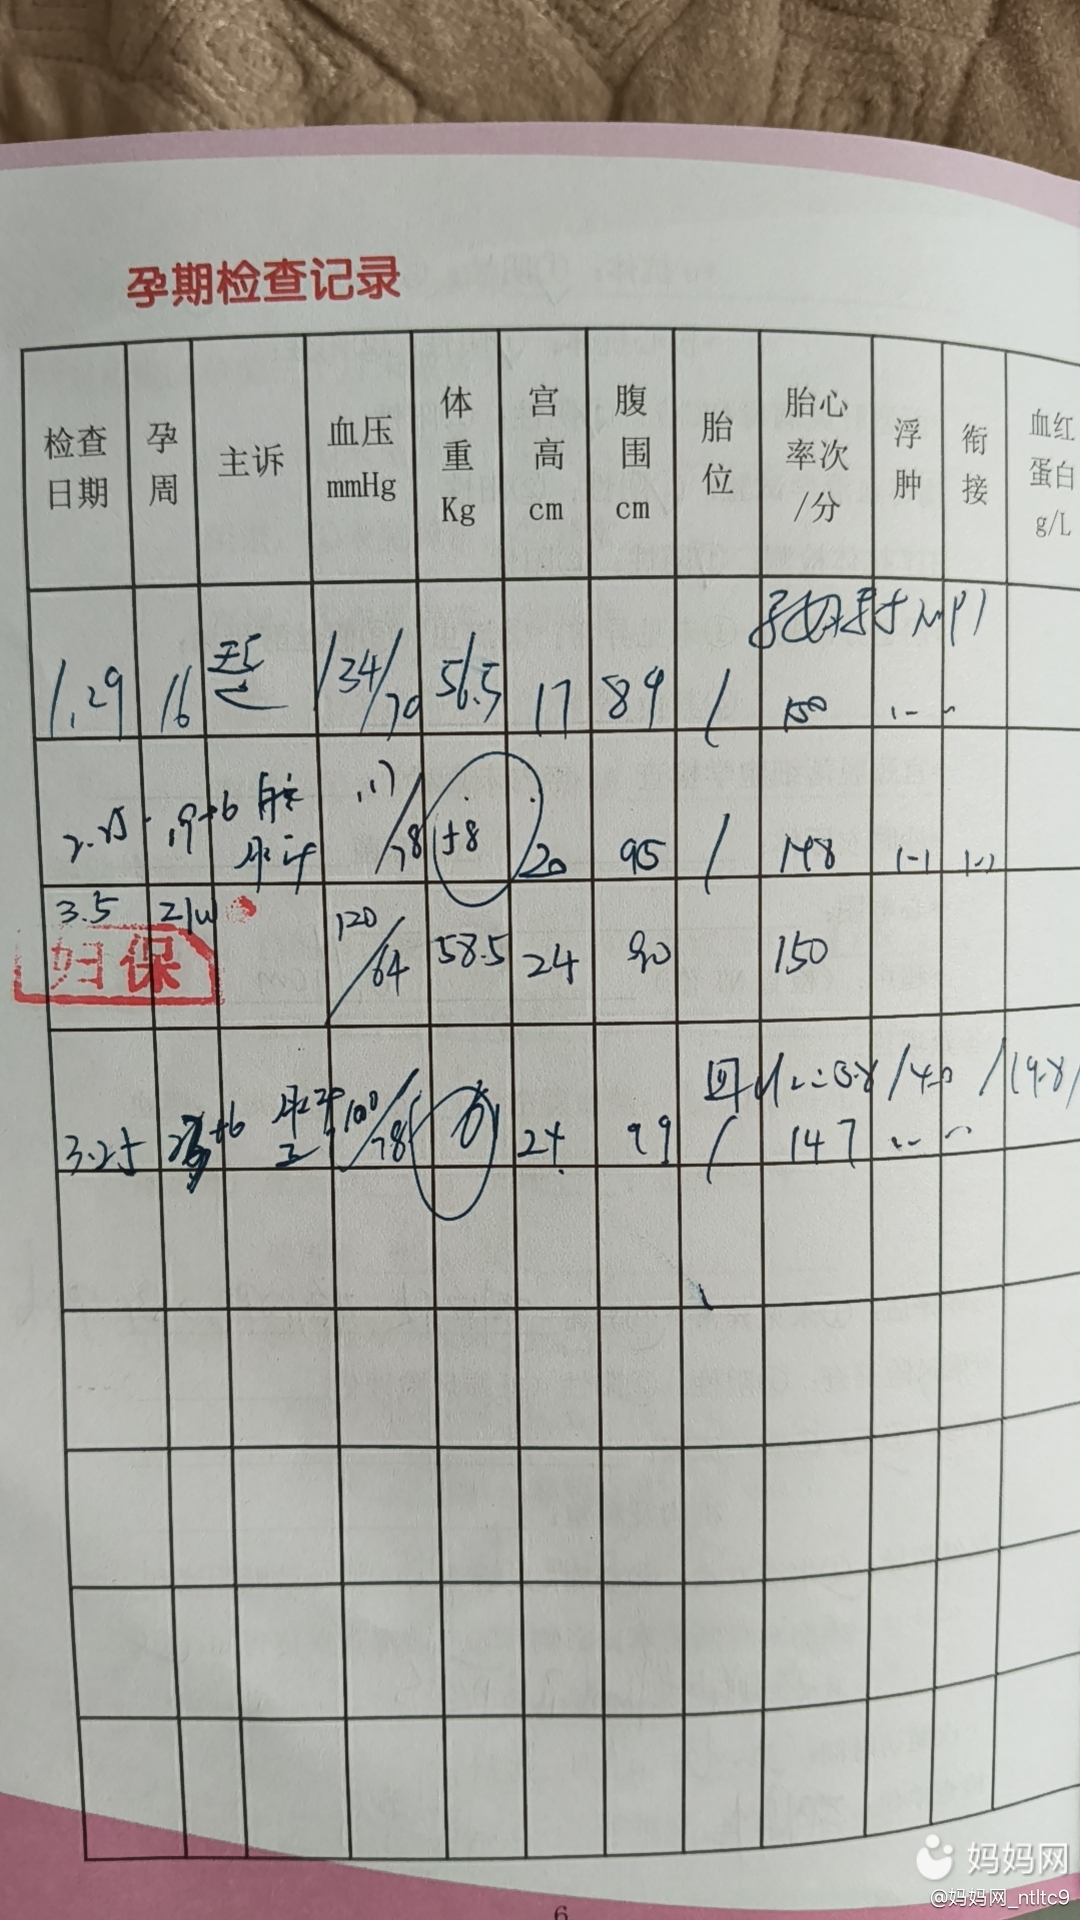 孕期检查记录
检查日期 孕周 主诉 血压mmHg 体重Kg 宫高cm 腹围cm 胎位 胎心率次/分 浮肿 衔接 血红蛋白g/L
1.29 16 134/70 56.5 17 89 / 150
2.25 19+6 117/78 58 20 95 / 148 (-) (-)
3.5 21w 120/64 58.5 24 90 150
妇保
3.25 +6 100/78 24 99 / 147
6
妈妈网
@妈妈网_ntltc9